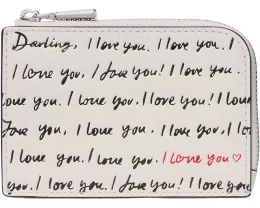 Darling, I love you. I love you. I
I love you, I love you! I love you.
love you. I love you. I love you! I love
love you, I love you. I love you, I lo
I love you. I love you. I love you♡
you. I love you. I love you! I love you.